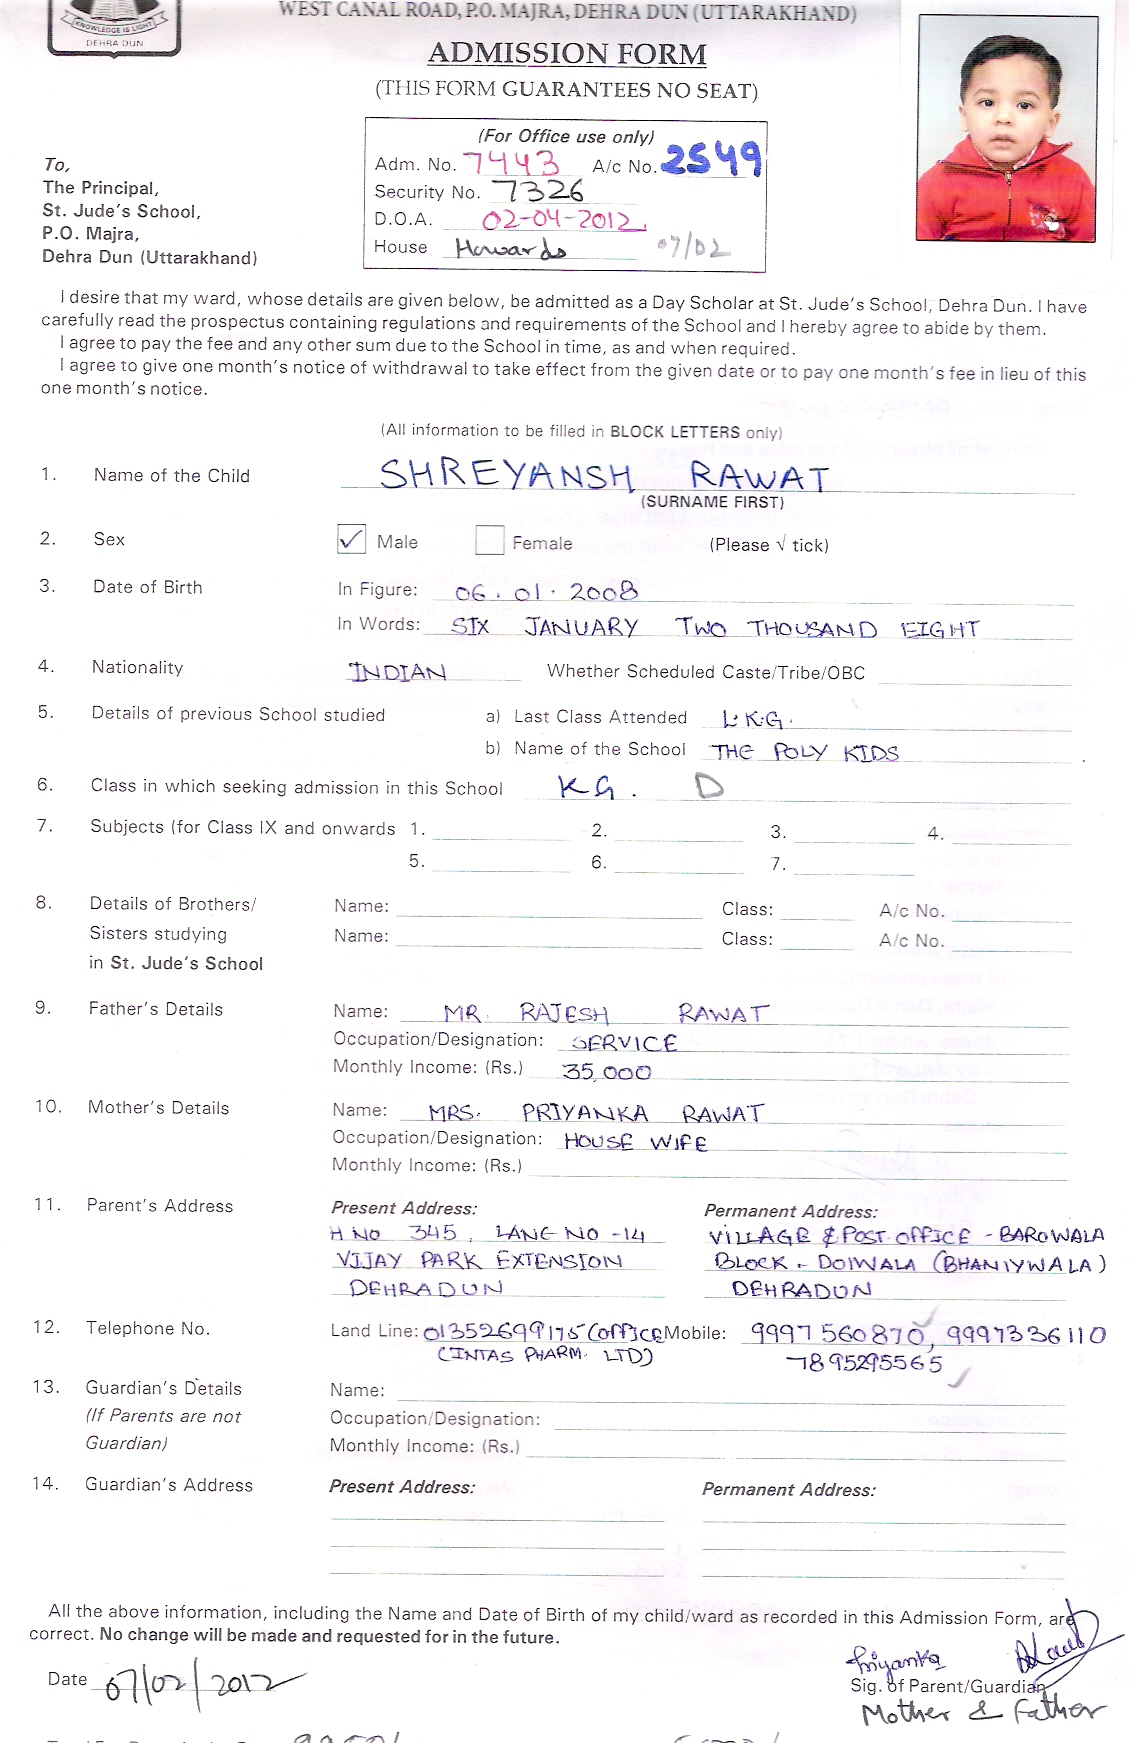 KNOWLEDGE IS LIGHT
DEHRA DUN
WEST CANAL ROAD, P.O. MAJRA, DEHRA DUN (UTTARAKHAND)
ADMISSION FORM
(THIS FORM GUARANTEES NO SEAT)
(For Office use only)
Adm. No. 7443 A/c No. 2549
Security No. 7326
D.O.A. 02-04-2012
House Howards 07/02
To,
The Principal,
St. Jude's School,
P.O. Majra,
Dehra Dun (Uttarakhand)
I desire that my ward, whose details are given below, be admitted as a Day Scholar at St. Jude's School, Dehra Dun. I have
carefully read the prospectus containing regulations and requirements of the School and I hereby agree to abide by them.
I agree to pay the fee and any other sum due to the School in time, as and when required.
I agree to give one month's notice of withdrawal to take effect from the given date or to pay one month's fee in lieu of this
one month's notice.
(All information to be filled in BLOCK LETTERS only)
1. Name of the Child SHREYANSH RAWAT
(SURNAME FIRST)
2. Sex ✓ Male Female (Please √ tick)
3. Date of Birth In Figure: 06.01.2008
In Words: SIX JANUARY TWO THOUSAND EIGHT
4. Nationality INDIAN Whether Scheduled Caste/Tribe/OBC
5. Details of previous School studied a) Last Class Attended L.K.G.
b) Name of the School THE POLY KIDS
6. Class in which seeking admission in this School K G . D
7. Subjects (for Class IX and onwards 1. 2. 3. 4.
5. 6. 7.
8. Details of Brothers/ Name: Class: A/c No.
Sisters studying Name: Class: A/c No.
in St. Jude's School
9. Father's Details Name: MR. RAJESH RAWAT
Occupation/Designation: SERVICE
Monthly Income: (Rs.) 35,000
10. Mother's Details Name: MRS. PRIYANKA RAWAT
Occupation/Designation: HOUSE WIFE
Monthly Income: (Rs.)
11. Parent's Address Present Address: Permanent Address:
H NO 345, LANE NO -14 VILLAGE & POST OFFICE - BAROWALA
VIJAY PARK EXTENSION BLOCK - DOIWALA (BHANIYWALA)
DEHRADUN DEHRADUN
12. Telephone No. Land Line: 01352699175 (OFFICE Mobile: 9997560870, 9997336110
(INTAS PHARM. LTD) 7895295565
13. Guardian's Details Name:
(If Parents are not Occupation/Designation:
Guardian) Monthly Income: (Rs.)
14. Guardian's Address Present Address: Permanent Address:
All the above information, including the Name and Date of Birth of my child/ward as recorded in this Admission Form, are
correct. No change will be made and requested for in the future.
Priyanka
Date 07/02/2012 Sig. of Parent/Guardian
Mother & Father